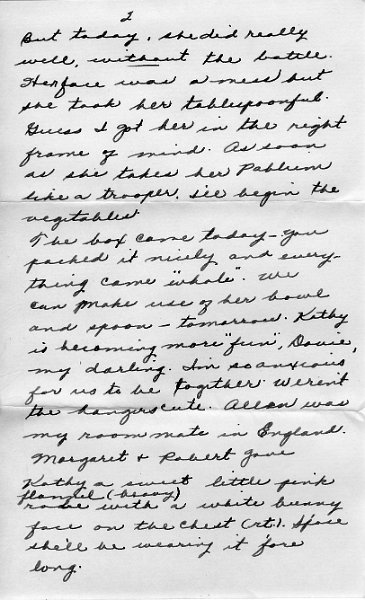 2
But today, she did really
well, without the battle.
Her face was a mess but
she took her tablespoonful.
Guess I got her in the right
frame of mind. As soon
as she takes her Pablum
like a trooper, I'll begin the
vegitables.
The box came today - you
packed it nicely and every-
thing came "whole". We
can make use of her bowl
and spoon - tomorrow. Kathy
is becoming more "fun",
my darling. Am so anxious
for us to be together. Weren't
the hangers cute. Allan was
my room mate in England.
Margaret + Robert gave
Kathy a sweet little pink
flannel
with a white bunny
face on the chest (rt.).
she'll be wearing it 'fore
long.